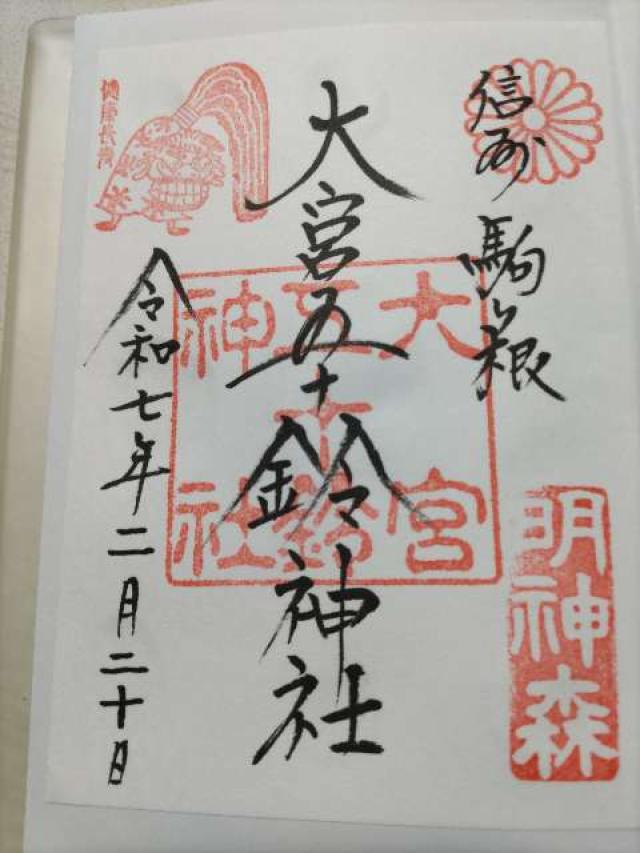 信州 駒ヶ根
大宮五十鈴神社
大宮
五十鈴
神社
明神森
令和七年二月二十日